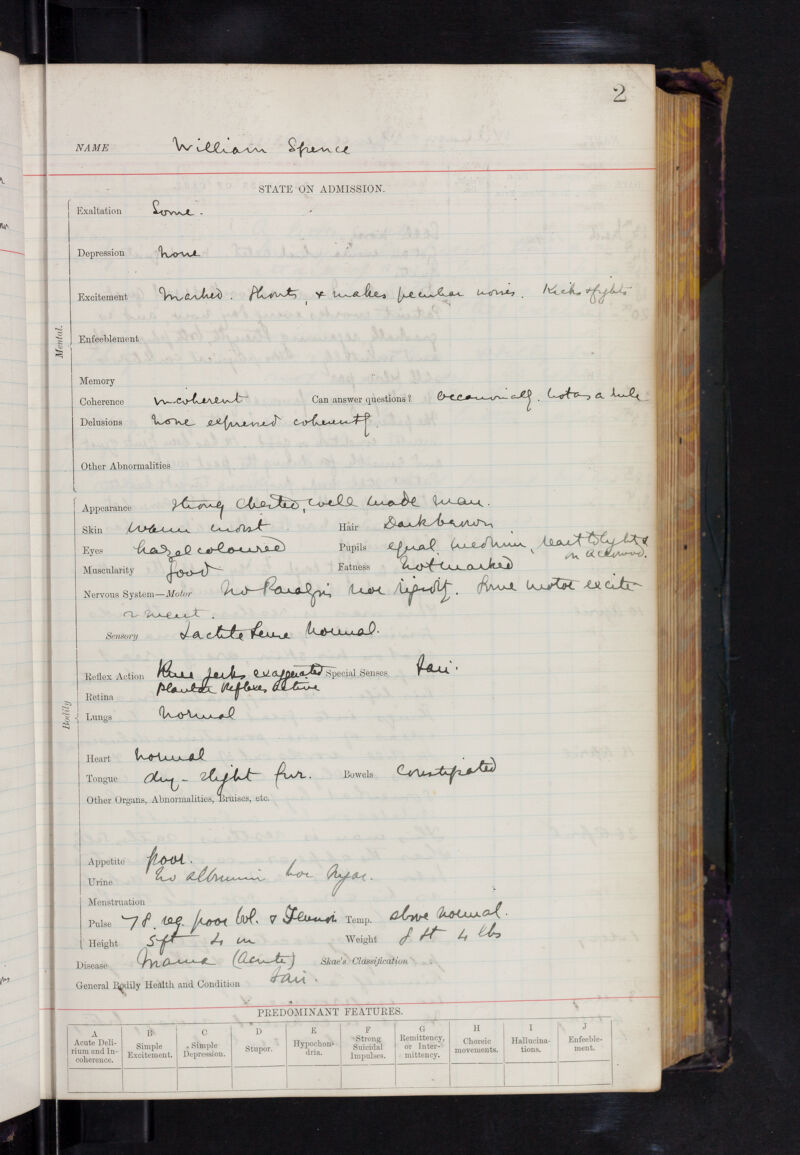 2
NAME William Spence
STATE ON ADMISSION.
Mental.
Exaltation Some.
Depression None
Excitement Marked. Shouts, & makes peculiar noises. Kicks & fights
Enfeeblement
Memory
Coherence incoherent Can answer questions? Occasionally. Not as a rule
Delusions None expressed coherently
Other Abnormalities
Bodily
Appearance Strong chested, well made man.
Skin warm moist Hair Dark brown
Eyes hazel coloured Pupils equal medium, react to light &
on accommod.
Muscularity Good Fatness Not marked
Nervous System—Motor No Paralysis nor rigidity. Some motor excite-
ment.
Sensory Tactile sense normal.
Reflex Action Knee jerks exaggerated Special Senses Fair.
Plantar Reflexes active
Retina
Lungs Normal
Heart Normal
Tongue dry - slight fur. Bowels Constipated
Other Organs, Abnormalities, Bruises, etc.
Appetite Poor.
Urine No albumin nor sugar.
Menstruation
Pulse 78. reg. poor vol. & Tension Temp. above normal.
Height 5 ft 4 in Weight 8 st 4 lbs
Disease Mania (Acute) Skae's Classification
General Bodily Health and Condition Fair.
PREDOMINANT FEATURES.
A B C D E F G H I J
Acute Delirium and Incoherence. Simple Excitement. Simple Depression. Stupor. Hypochondria. Strong Suicidal Impulses. Remittency, or Intermittency. Choreic movements. Hallucinations. Enfeeblement.